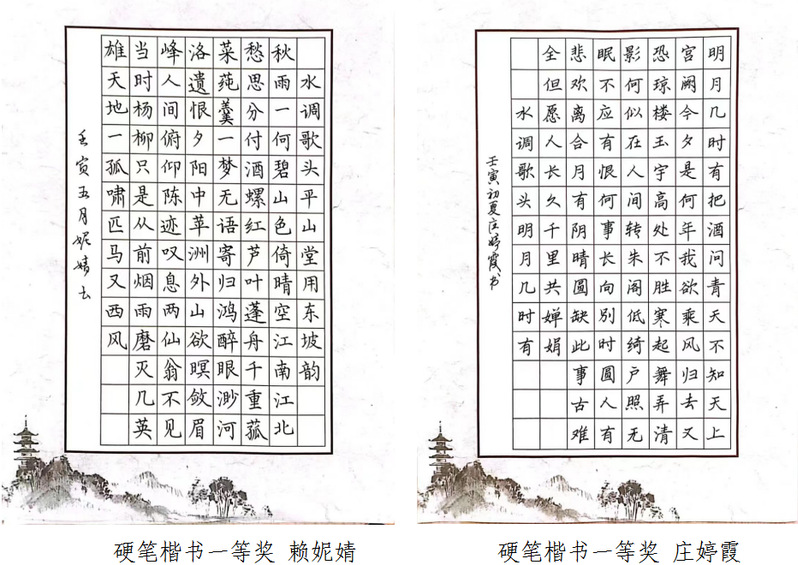 水调歌头平山堂用东坡韵
秋雨一何碧山色倚晴空江南江北
愁思分付酒螺红芦叶蓬舟千重菰
菜莼羹一梦无语寄归鸿醉眼渺河
洛遗恨夕阳中苹洲外山欲暝敛眉
峰人间俯仰陈迹叹息两仙翁不见
当时杨柳只是从前烟雨磨灭几英
雄天地一孤啸匹马又西风
壬寅五月妮婧书
硬笔楷书一等奖 赖妮婧
明月几时有把酒问青天不知天上
宫阙今夕是何年我欲乘风归去又
恐琼楼玉宇高处不胜寒起舞弄清
影何似在人间转朱阁低绮户照无
眠不应有恨何事长向别时圆人有
悲欢离合月有阴晴圆缺此事古难
全但愿人长久千里共婵娟
水调歌头明月几时有
壬寅初夏庄婷霞书
硬笔楷书一等奖 庄婷霞